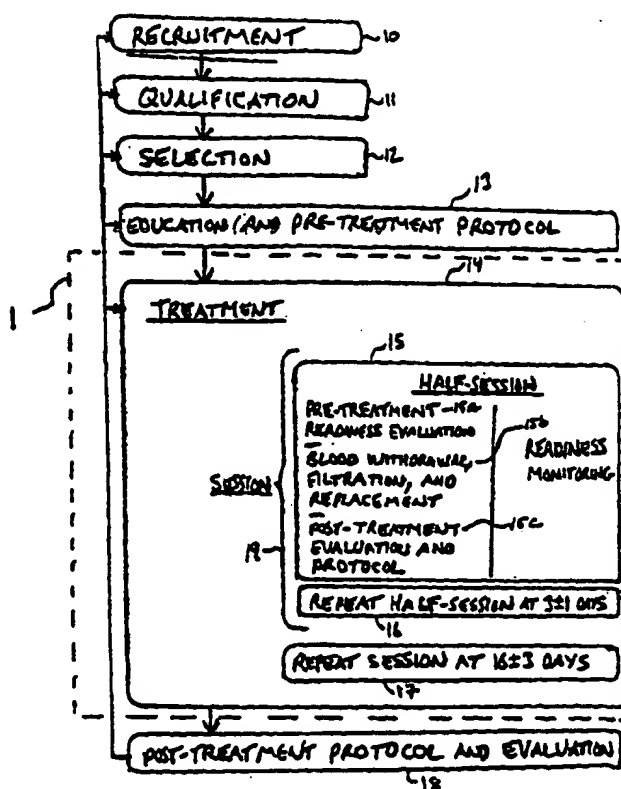 RECRUITMENT 10
QUALIFICATION 11
SELECTION 12
13
EDUCATION (AND) PRE-TREATMENT PROTOCOL
14
1
TREATMENT
15
HALF-SESSION
PRE-TREATMENT 15a
READINESS EVALUATION
15b
BLOOD WITHDRAWAL,
FILTRATION, AND
REPLACEMENT
READINESS
MONITORING
SESSION
POST-TREATMENT 15c
EVALUATION AND
PROTOCOL
19
REPEAT HALF-SESSION AT 3±1 DAYS
16
REPEAT SESSION AT 16±3 DAYS
17
POST-TREATMENT PROTOCOL AND EVALUATION
18